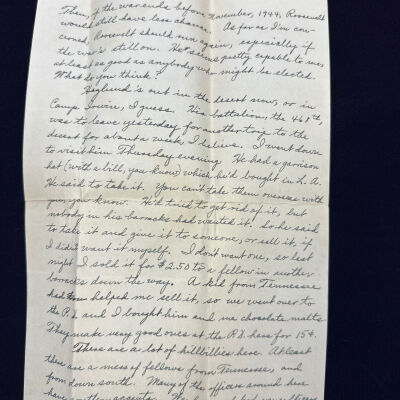 Then, if the war ends before November, 1944, Roosevelt
would still have less chance. As far as I'm con-
cerned, Roosevelt should run again, especially if
the war's still on. He seems pretty capable to me,
at least as good as anybody who might be elected.
What do you think?
Seglund's out in the desert now, or in
Camp Irwin, I guess. His battalion, the 461th,
was to leave yesterday for another trip to the
desert for about a week, I believe. I went down
to visit him Thursday evening. He had a garrison
hat (with a bill, you know) which he'd bought in L.A.
He said to take it. You can't take them overseas with
you, you know. He'd tried to get rid of it, but
nobody in his barracks had wanted it. So he said
to take it and give it to someone, or sell it, if
I didn't want it myself. I don't want one, so last
night I sold it for $2.50 to a fellow in another
barracks down the way. A kid from Tennessee
had helped me sell it, so we went over to
the P.X. and I bought him and me chocolate malts.
They make very good ones at the P.X. here for 15¢.
There are a lot of hillbillies here. At least
there are a mess of fellows from Tennessee, and
from down south. Many of the officers around here
have southern accents.